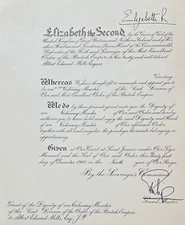 Elizabeth R
Elizabeth the Second, by the Grace of God of the
United Kingdom of Great Britain and Northern Ireland and of Her other
Realms and Territories Queen, Head of the Commonwealth,
Defender of the Faith and Sovereign of the Most Excellent
Order of the British Empire to
Albert Edward Mills Esquire
Greeting
Whereas We have thought fit to nominate and appoint you to
be an Ordinary Member of the Civil Division
of Our said Most Excellent Order of the British Empire
We do by these presents grant unto you the Dignity of
an Ordinary Member of Our said Order
and hereby authorise you to have hold and enjoy the said
Dignity and Rank of an Ordinary Member of Our aforesaid Order
together with all and singular the privileges thereunto belonging or
appertaining
Given at Our Court at Saint James's under Our Sign
Manual and the Seal of Our said Order this Thirty-first
day of December 1960 in the Year of Our Reign
By the Sovereign's Command
Grand Master
Grant of the Dignity of an Ordinary Member
of the Civil Division of the Order of the British Empire
to Albert Edward Mills, Esq.